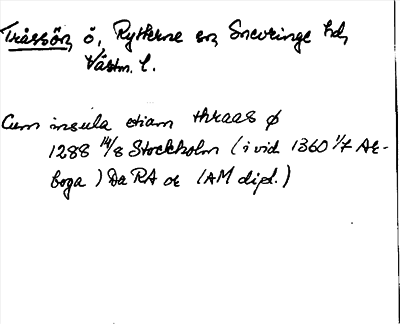 Trässön ö, Rytterne sn Snevringe hd,
Västm. l.
Cum insula etiam thraas ø
1288 14/8 Stockholm (i vid 1360 1/7 Ar-
boga) Da RA or (AM dipl.)